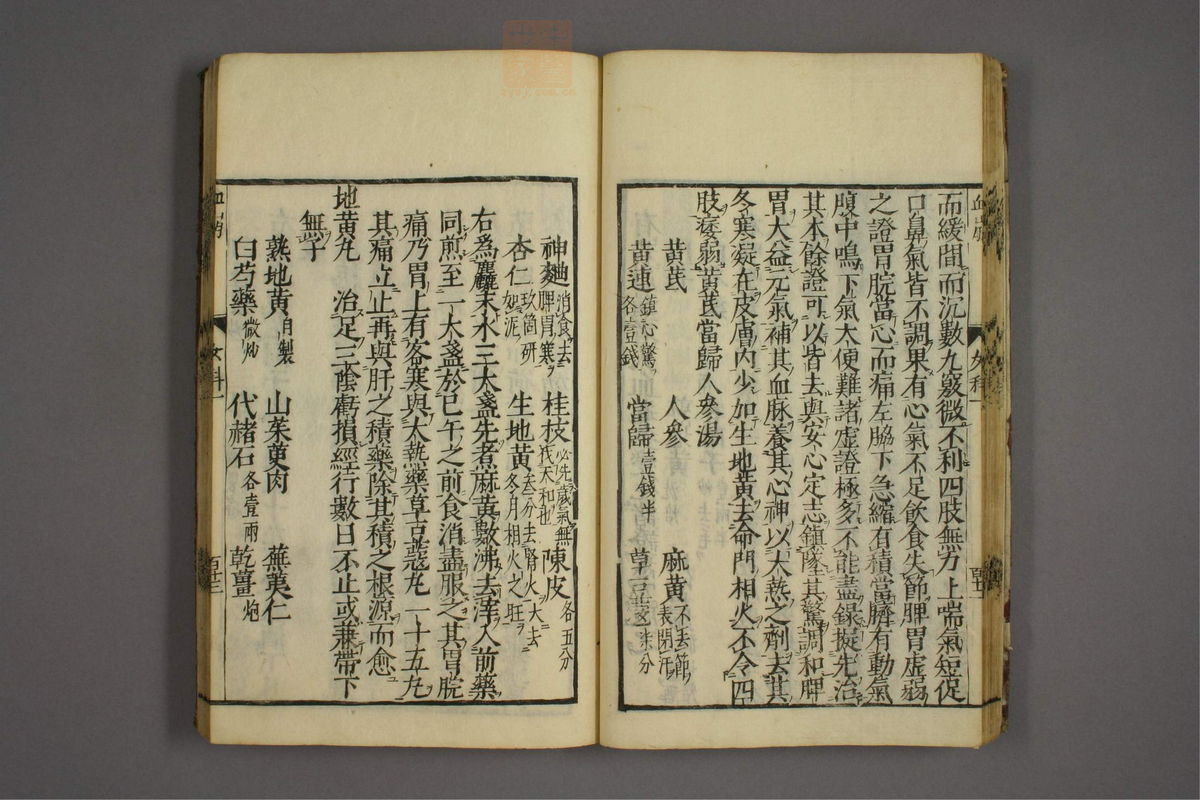 而緩間而沉數九竅微不利四肢無力上喘氣短促
口鼻氣皆不調果有心氣不足飲食失節脾胃虛弱
之證胃脘當心而痛左脇下急縮有積當臍有動氣
腹中鳴下氣大便難諸虛證極多不能盡錄擬先治
其本餘證可以皆去與安心定志鎮墜其驚調和脾
胃大益元氣補其血脉養其心神以大熱之劑去其
冬寒凝在皮膚內少加生地黃去命門相火不令四
肢痿弱黃芪當歸人參湯
黃芪 人參 麻黃不去節 表閉汗
黃連鎮心驚 各壹錢 當歸壹錢半 草豆蔻柒分
女科一
神麯消食去 脾胃寒 桂枝必先歲氣無 伐天和也 陳皮各五分
杏仁玖箇研 如泥 生地黃去分去腎火大去 冬月相火之旺
右為麤末水三大盞先煮麻黃數沸去滓入前藥
同煎至一大盞於巳午之前食消盡服之其胃脘
痛乃胃上有客寒與大熱藥草豆蔻丸一十五丸
其痛立止再與肝之積藥除其積之根源而愈
地黃丸 治足三陰虧損經行數日不止或兼帶下
無子
熟地黃自製 山茱萸肉 蕪荑仁
白芍藥微炒 代赭石各壹兩 乾薑炮
血崩
女科一